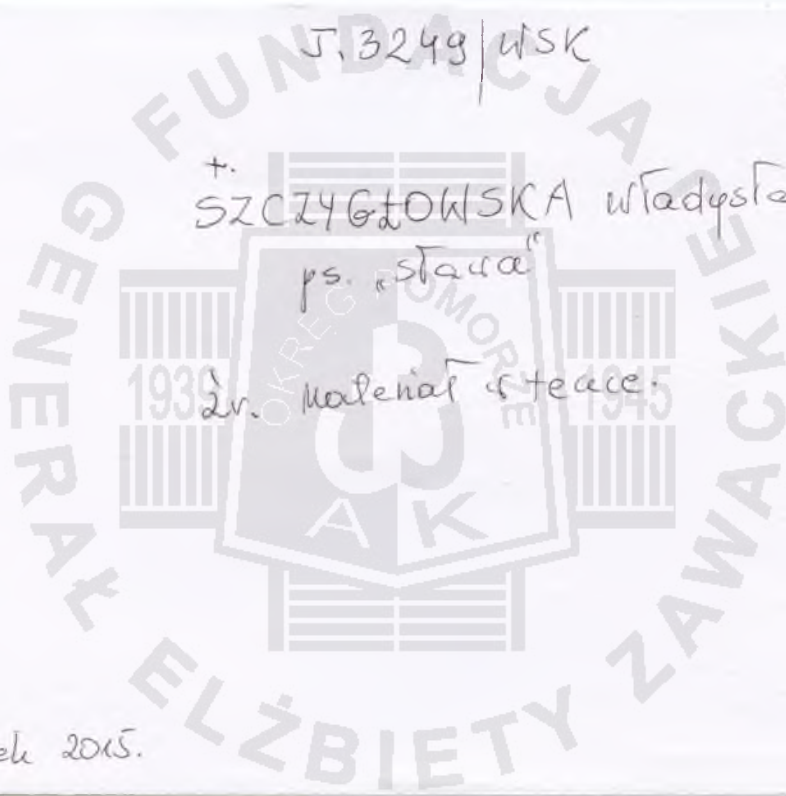 T. 3249/WSK
+.
SZCZYGŁOWSKA Władysła
ps. „Sława"
Źr. Materiał w teczce.
2015.
FUNDACJA GENERAŁ ELŻBIETY ZAWACKIE
OKRĘG POMORZE
1939 1945
AK